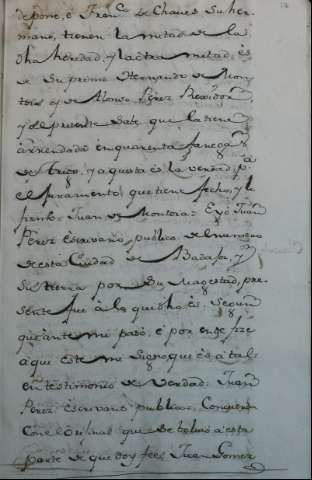 depone, é Fran.co de Chaues Su her-
mano, tienen la mitad de la
dha heredad, y la otra mitad, es
de Su primo Hernando de Mon-
toia, y de Alonso Perez Rexidor,
y el presente Sabe que la tiene
arrendada en quarenta fanegas
de trigo, y aquesta es la verdad, p.a
el juramento que tiene fecho, y lo
firmó Juan de Montoia = E yo Juan
Perez escriuano publico del numero
de esta Ciudad de Badajoz, y
Su tierra por Su Magestad, pre-
sente fui á lo que dho es, Segun
que ante mi pasó, é por ende fize
aqui este mi Signo que es á tal =
en testimonio de Verdad. Juan
Perez escriuano publico. Concuerda
Con el original que Se boluió á esta
parte de que doy fee = Juan Gomez